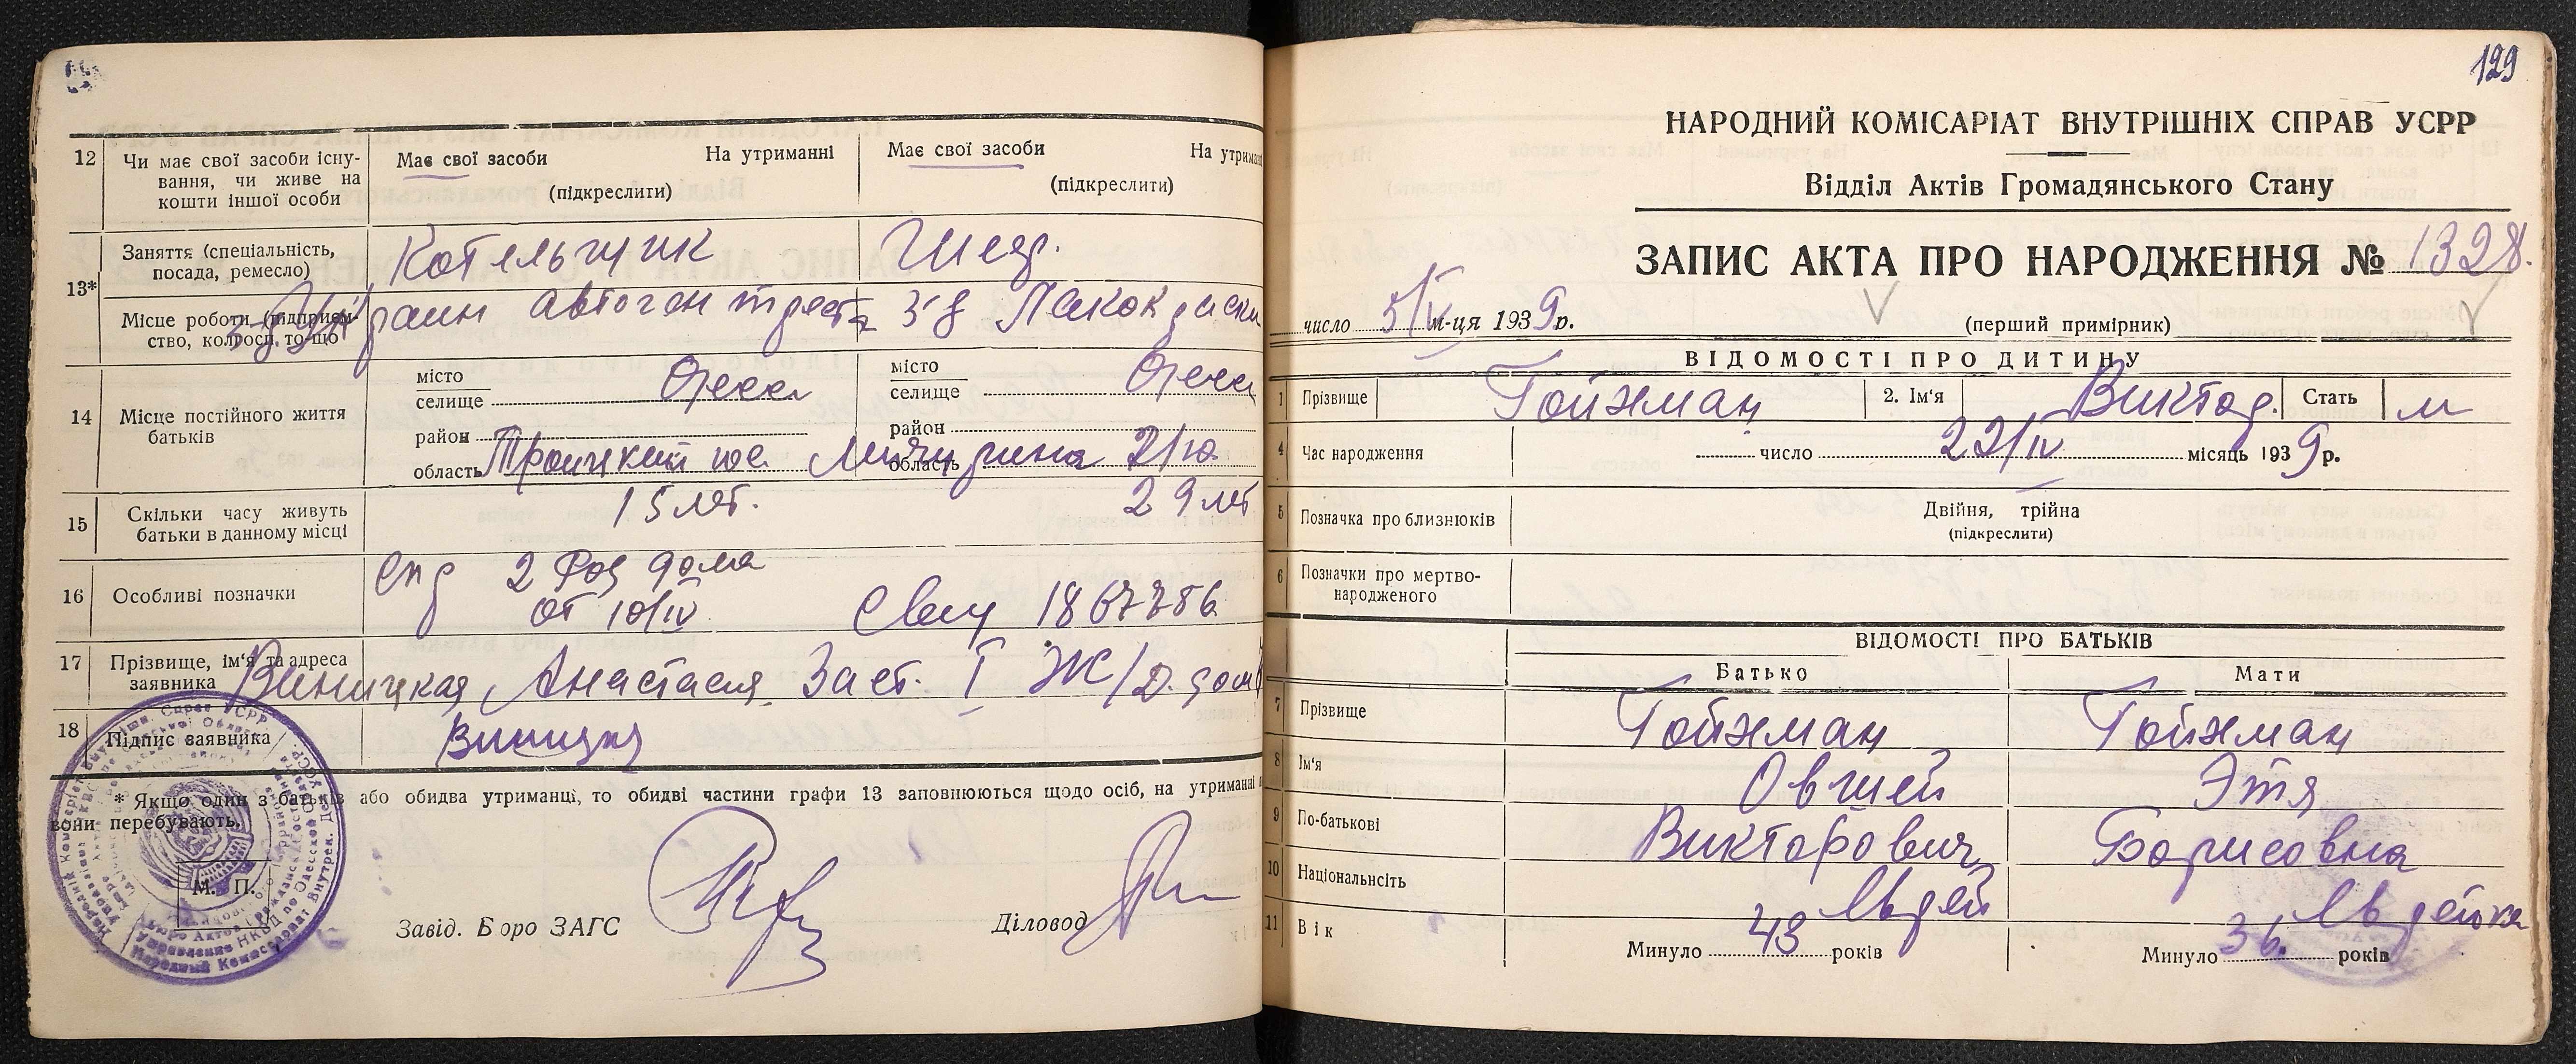 12 Чи має свої засоби існу-
вання, чи живе на
кошти іншої особи
Має свої засоби На утриманні
(підкреслити)
Має свої засоби На утриман
(підкреслити)
13*
Заняття (спеціальність,
посада, ремесло)
Котельщик
Швер.
Місце роботи (підприєм-
ство, колгосп, то-що
з-д Украин автоген треста
з-д Лакокраски
14 Місце постійного життя
батьків
місто
селище Одесса
район
область
місто
селище Одесса
район
область
Троицкий пос. Мичурина 21/10
15 Скільки часу живуть
батьки в данному місці
15 лет.
29 лет
16 Особливі позначки
спр 2 Род дома
от 10/IV Свид 1867786
17 Прізвище, ім'я та адреса
заявника
Виницкая Анастасия Заст. I ЖК/Д. дом
18 Підпис заявника
Виницкая
* Якщо один з батьків або обидва утриманці, то обидві частини графи 13 заповнюються щодо осіб, на утриманні
вони перебувають.
М. П.
Завід. Бюро ЗАГС
Діловод
129
НАРОДНИЙ КОМІСАРІАТ ВНУТРІШНІХ СПРАВ УСРР
Відділ Актів Громадянського Стану
ЗАПИС АКТА ПРО НАРОДЖЕННЯ № 1328.
число 5/V м-ця 1939р.
(перший примірник)
ВІДОМОСТІ ПРО ДИТИНУ
1 Прізвище Гойхман 2. Ім'я Виктор. Стать м
4 Час народження число 22/IV місяць 1939р.
5 Позначка про близнюків
Двійня, трійна
(підкреслити)
6 Позначки про мертво-
народженого
ВІДОМОСТІ ПРО БАТЬКІВ
Батько Мати
7 Прізвище Гойхман Гойхман
8 Ім'я Овшей Этя
9 По-батькові Викторович Борисовна
10 Національність Еврей Еврейка
11 Вік
Минуло 43 років
Минуло 36. років